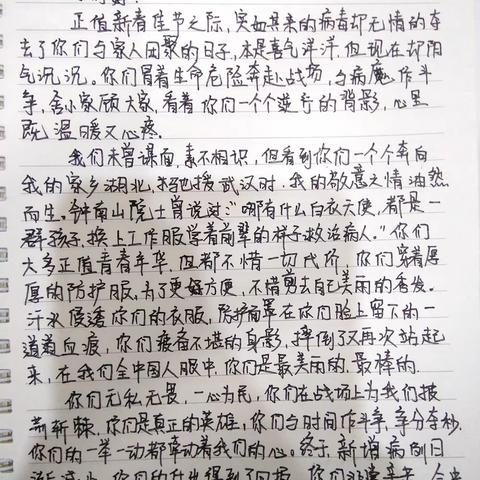 正值新春佳节之际,突如其来的病毒却无情的夺
去了你们与家人团聚的日子,本是喜气洋洋,但现在却阳
气沉沉。你们冒着生命危险奔赴战场,与病魔作斗
争,舍小家顾大家,看着你们一个个逆行的背影,心里
既温暖又心疼。
我们未曾谋面,素不相识,但看到你们一个个奔向
我的家乡湖北,拯救援武汉时,我的敬意之情油然
而生。钟南山院士曾说过:"哪有什么白衣天使,都是一
群孩子,换上工作服学着前辈的样子救治病人。"你们
大多正值青春年华,但都不惜一切代价,你们穿着厚
厚的防护服,为了更好方便,不惜剪去自己美丽的秀发。
汗水侵透你们的衣服,防护面罩在你们脸上留下的一
道道血痕,你们疲备不堪的身影,摔倒了又再次站起
来,在我们全中国人眼中,你们是最美丽的,最棒的.
你们无私无畏,一心为民,你们在战场上为我们披
荆斩棘,你们是真正的英雄,你们与时间作斗争,争分夺秒.
你们的一举一动都牵动着我们的心。终于,新增病例日
渐减少,你们的付出得到了回报,你们